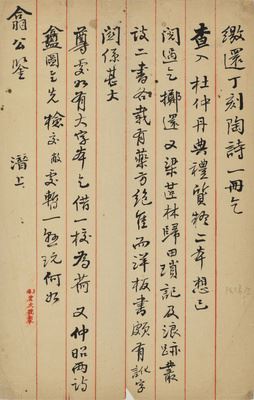 繳還丁刻陶詩一冊乞
查入杜仲丹典禮質疑二本想已
閱過乞擲還又梁茝林歸田瑣記及浪跡叢
談二書各載有藥方絕佳而洋板書頗有訛字
關係甚大
尊處如有大字本乞借一校為荷又仲昭兩詩
盦圖乞先檢交敝處暫一
翁公鑒
潛上